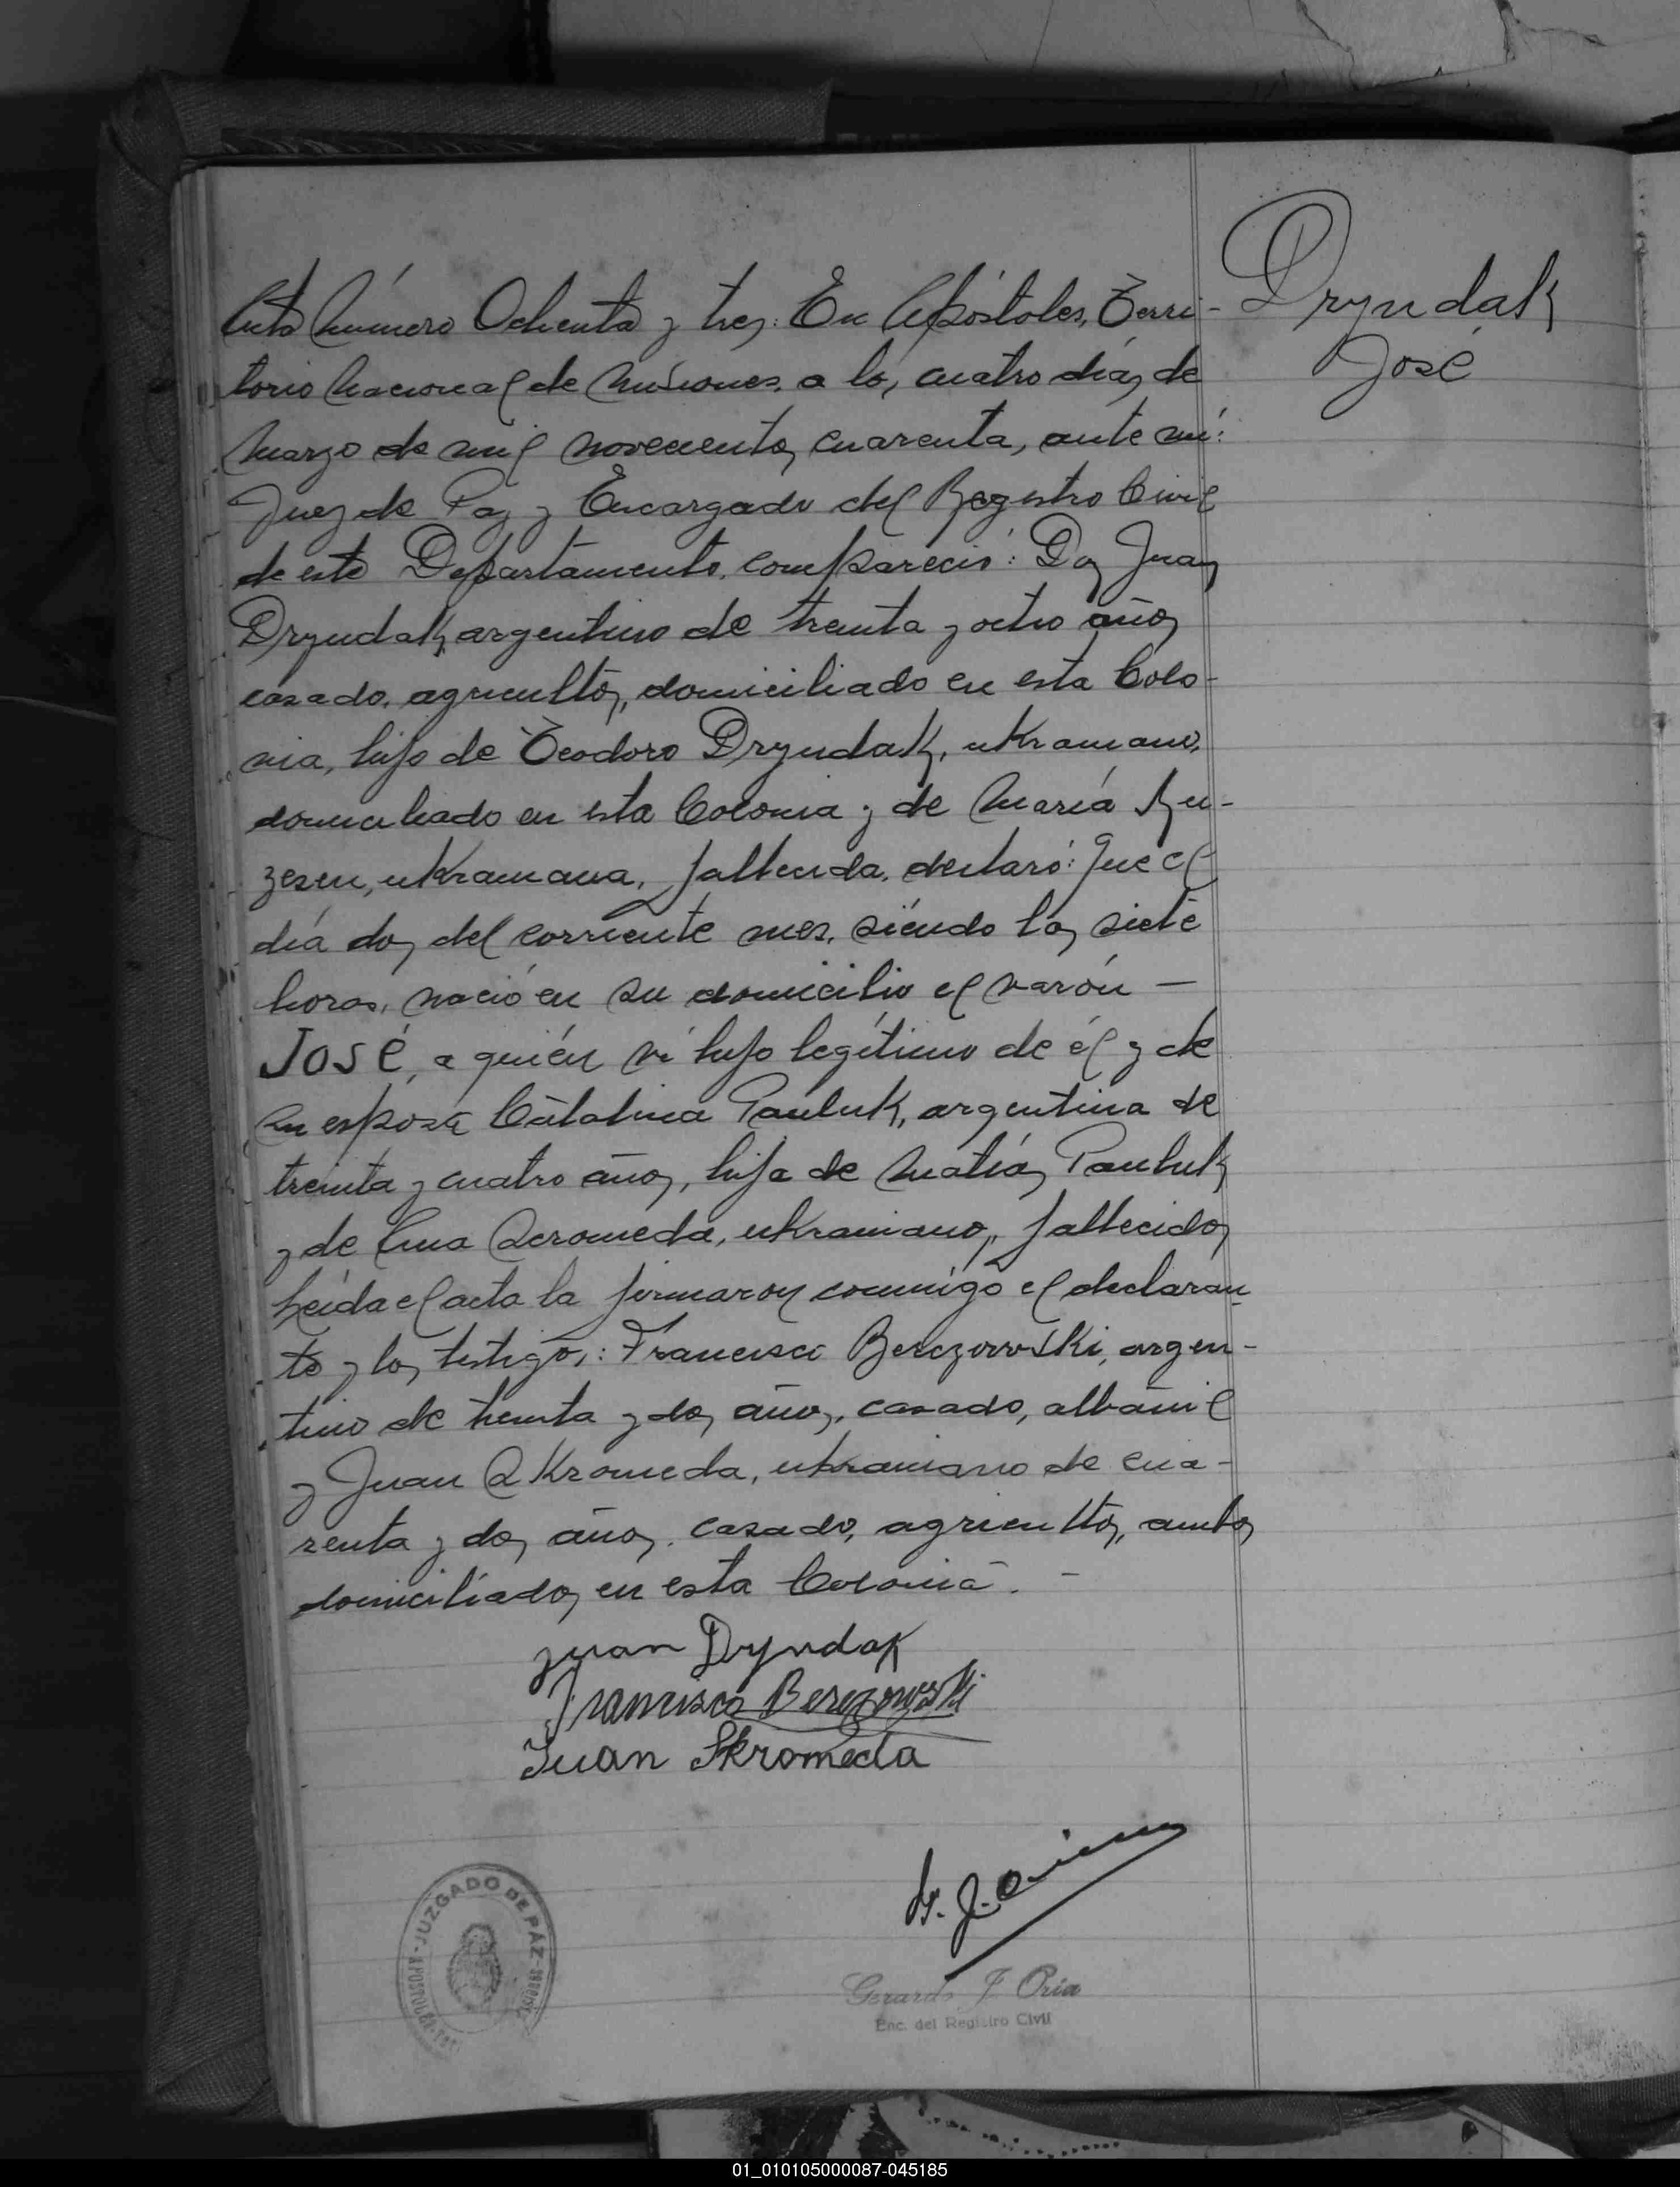 Acta Número Ochenta y tres: En Apóstoles, Terri-
torio Nacional de Misiones, a los cuatro días de
Marzo de mil novecientos cuarenta, ante mí:
Juez de Paz y Encargado del Registro Civil
de este Departamento, compareció: Don Juan
Dryndak, argentino de treinta y ocho años
casado, agricultor, domiciliado en esta Colo-
nia, hijo de Teodoro Dryndak, ukraniano,
domiciliado en esta Colonia y de María
ukraniana, fallecida, declaró: Que el
día dos del corriente mes, siéndo las siete
horas, nació en su domicilio el varón —
JOSÉ, a quién ví hijo legítimo de él y de
su esposa Catalina Pauluk, argentina de
treinta y cuatro años, hija de Matías Pauluk
y de Ana Scromeda, ukranianos, fallecidos
Leída el acta la firmaron conmigo el declaran-
te y los testigos: Francisco Berezowski, argen-
tino de treinta y dos años, casado, albañil
y Juan Skromeda, ukraniano de cua-
renta y dos años, casado, agricultor, ambos
domiciliados en esta Colonia. —
Dryndak
José
Juan Dryndak
Francisco Berezowski
Juan Skromeda
JUZGADO DE PAZ
APOSTOLES
Gerardo J Oria
Enc. del Registro Civil
01_010105000087-045185